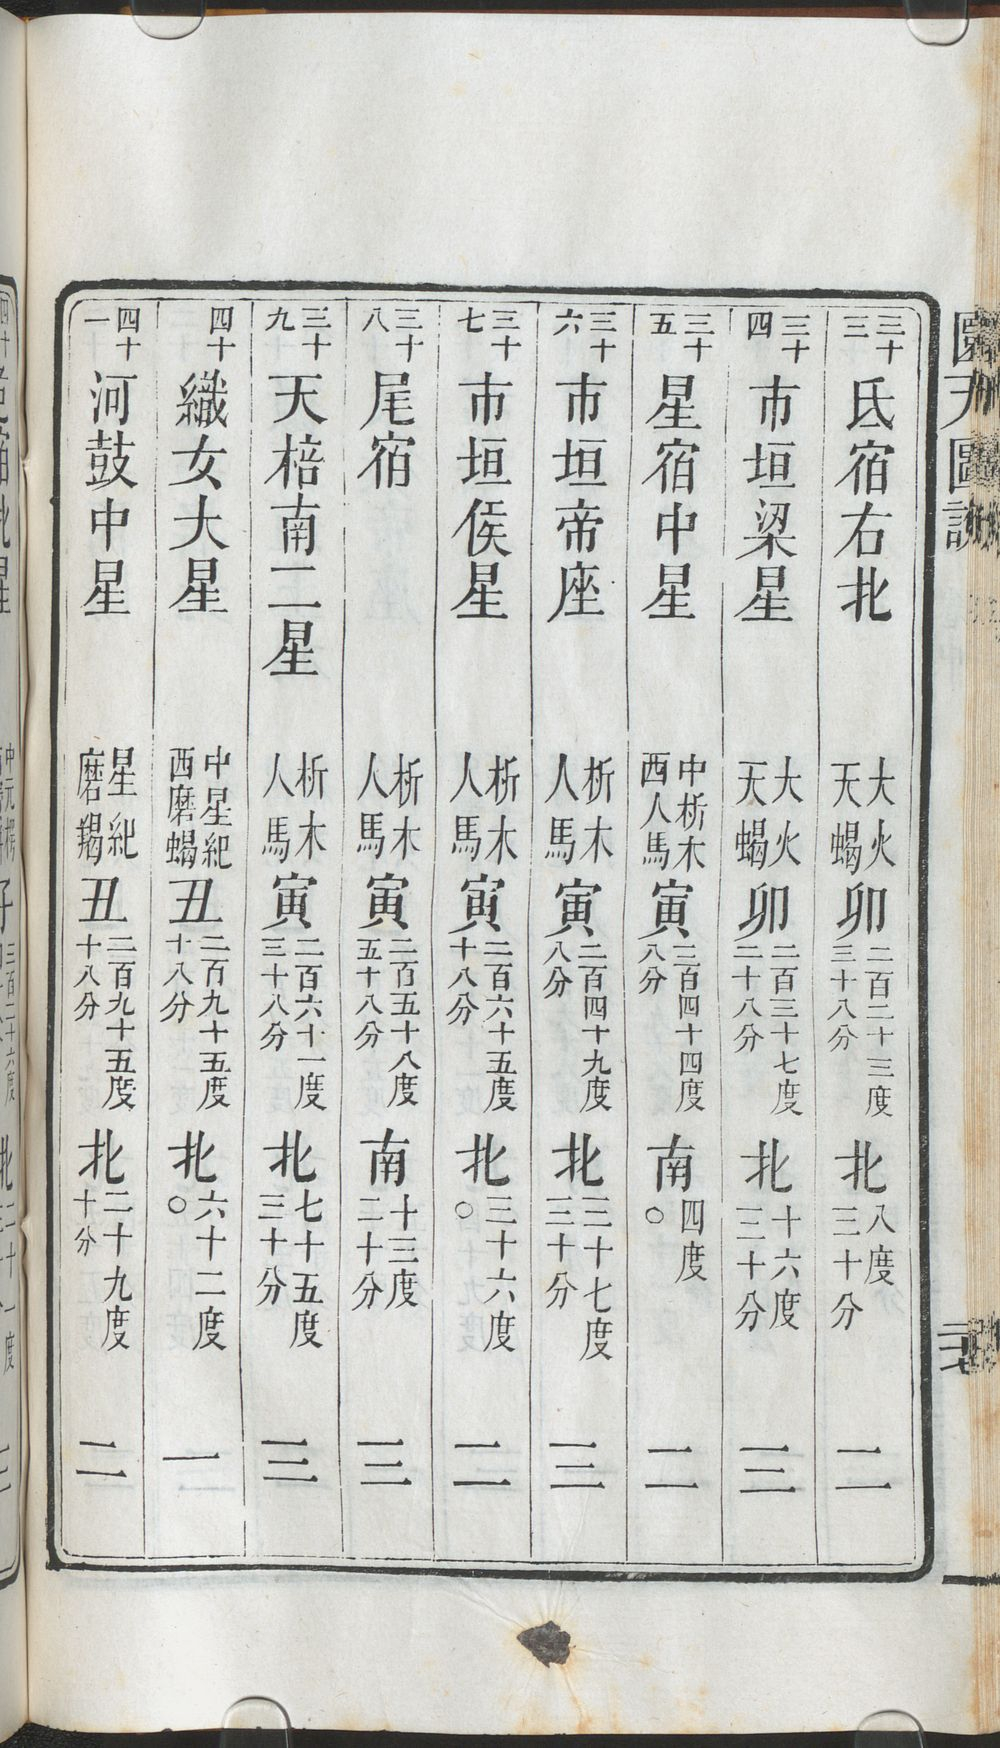 三十三 氐宿右北 大火天蝎 卯 二百二十三度三十八分 北 八度三十分 二
三十四 市垣梁星 大火天蝎 卯 二百三十七度二十八分 北 十六度三十分 三
三十五 星宿中星 中析木西人馬 寅 二百四十四度八分 南 四度〇 二
三十六 市垣帝座 析木人馬 寅 二百四十九度八分 北 三十七度三十分 三
三十七 市垣侯星 析木人馬 寅 二百六十五度十八分 北 三十六度〇 二
三十八 尾宿 析木人馬 寅 二百五十八度五十八分 南 十三度二十分 三
三十九 天棓南二星 析木人馬 寅 二百六十一度三十八分 北 七十五度三十分 三
四十 織女大星 中星紀西磨蝎 丑 二百九十五度十八分 北 六十二度〇 一
四十一 河鼓中星 星紀磨羯 丑 二百九十五度十八分 北 二十九度十分 二